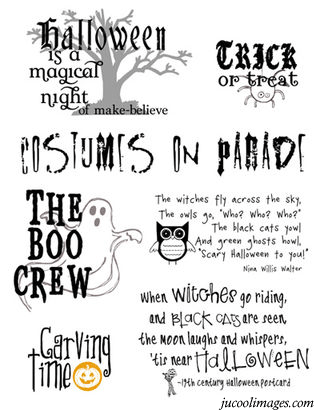 Halloween
is a
magical
night
of make-believe
TRICK
or treat
COSTUMES ON PARADE
THE
BOO
CREW
The witches fly across the sky,
The owls go, "Who? Who? Who?"
The black cats yowl
And green ghosts howl,
"Scary Halloween to you!"
Nina Willis Walter
Carving
time
When witches go riding,
and BLACK CATS are seen,
the moon laughs and whispers,
'tis near Halloween
-19th century Halloween postcard
jucoolimages.com